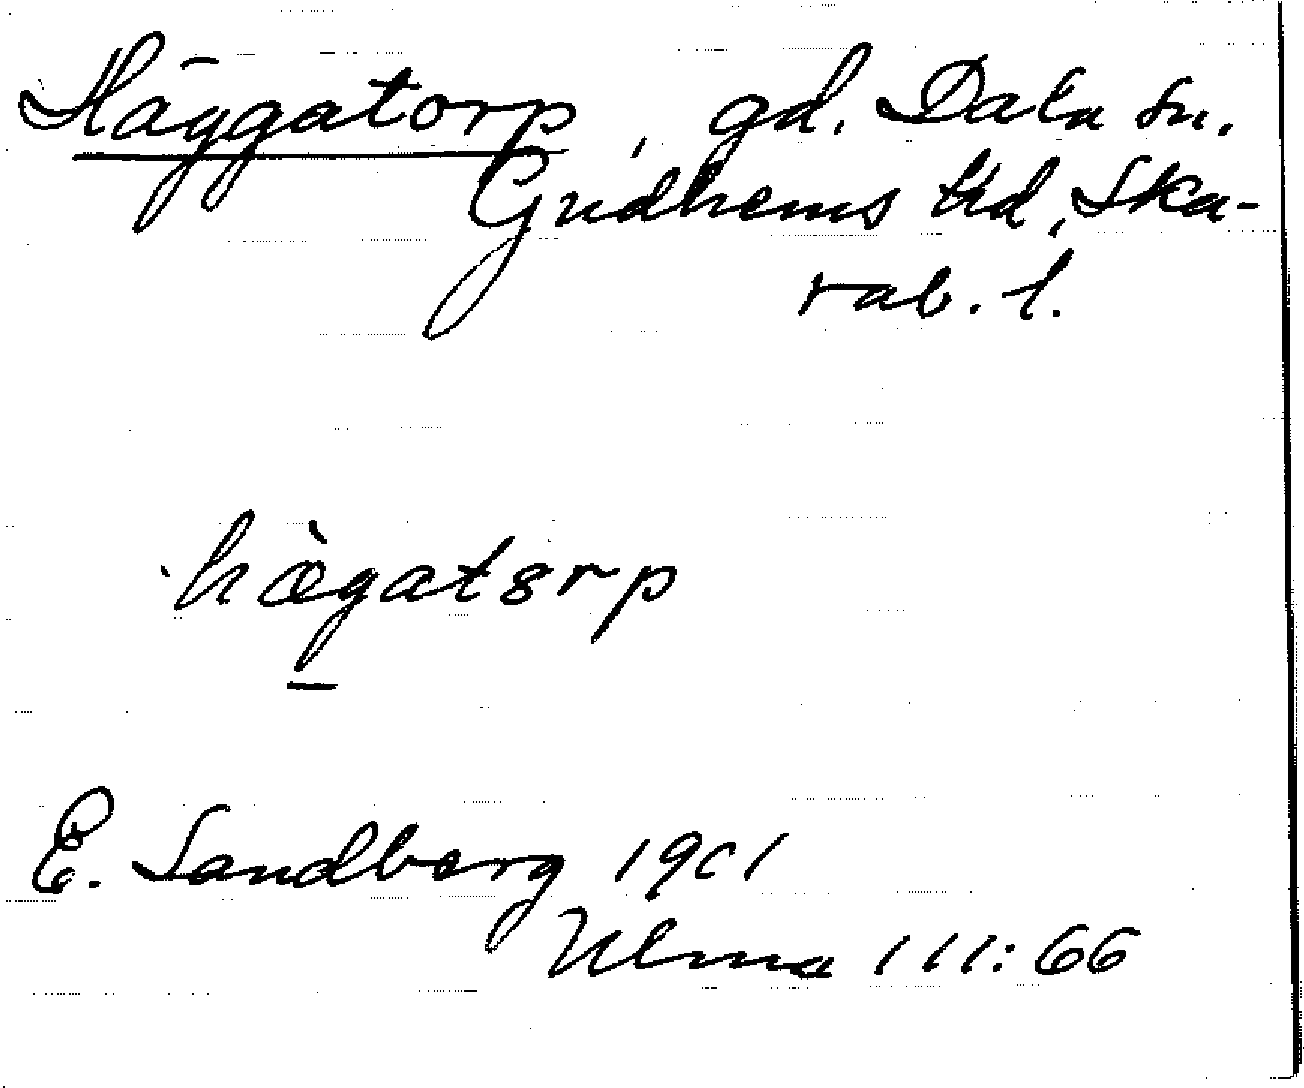 Häggatorp, gd. Dala sn.
Gudhems hd, Ska-
rab. l.
hæ̀gatɜrp
E. Sandberg 1901
Ulma 111:66